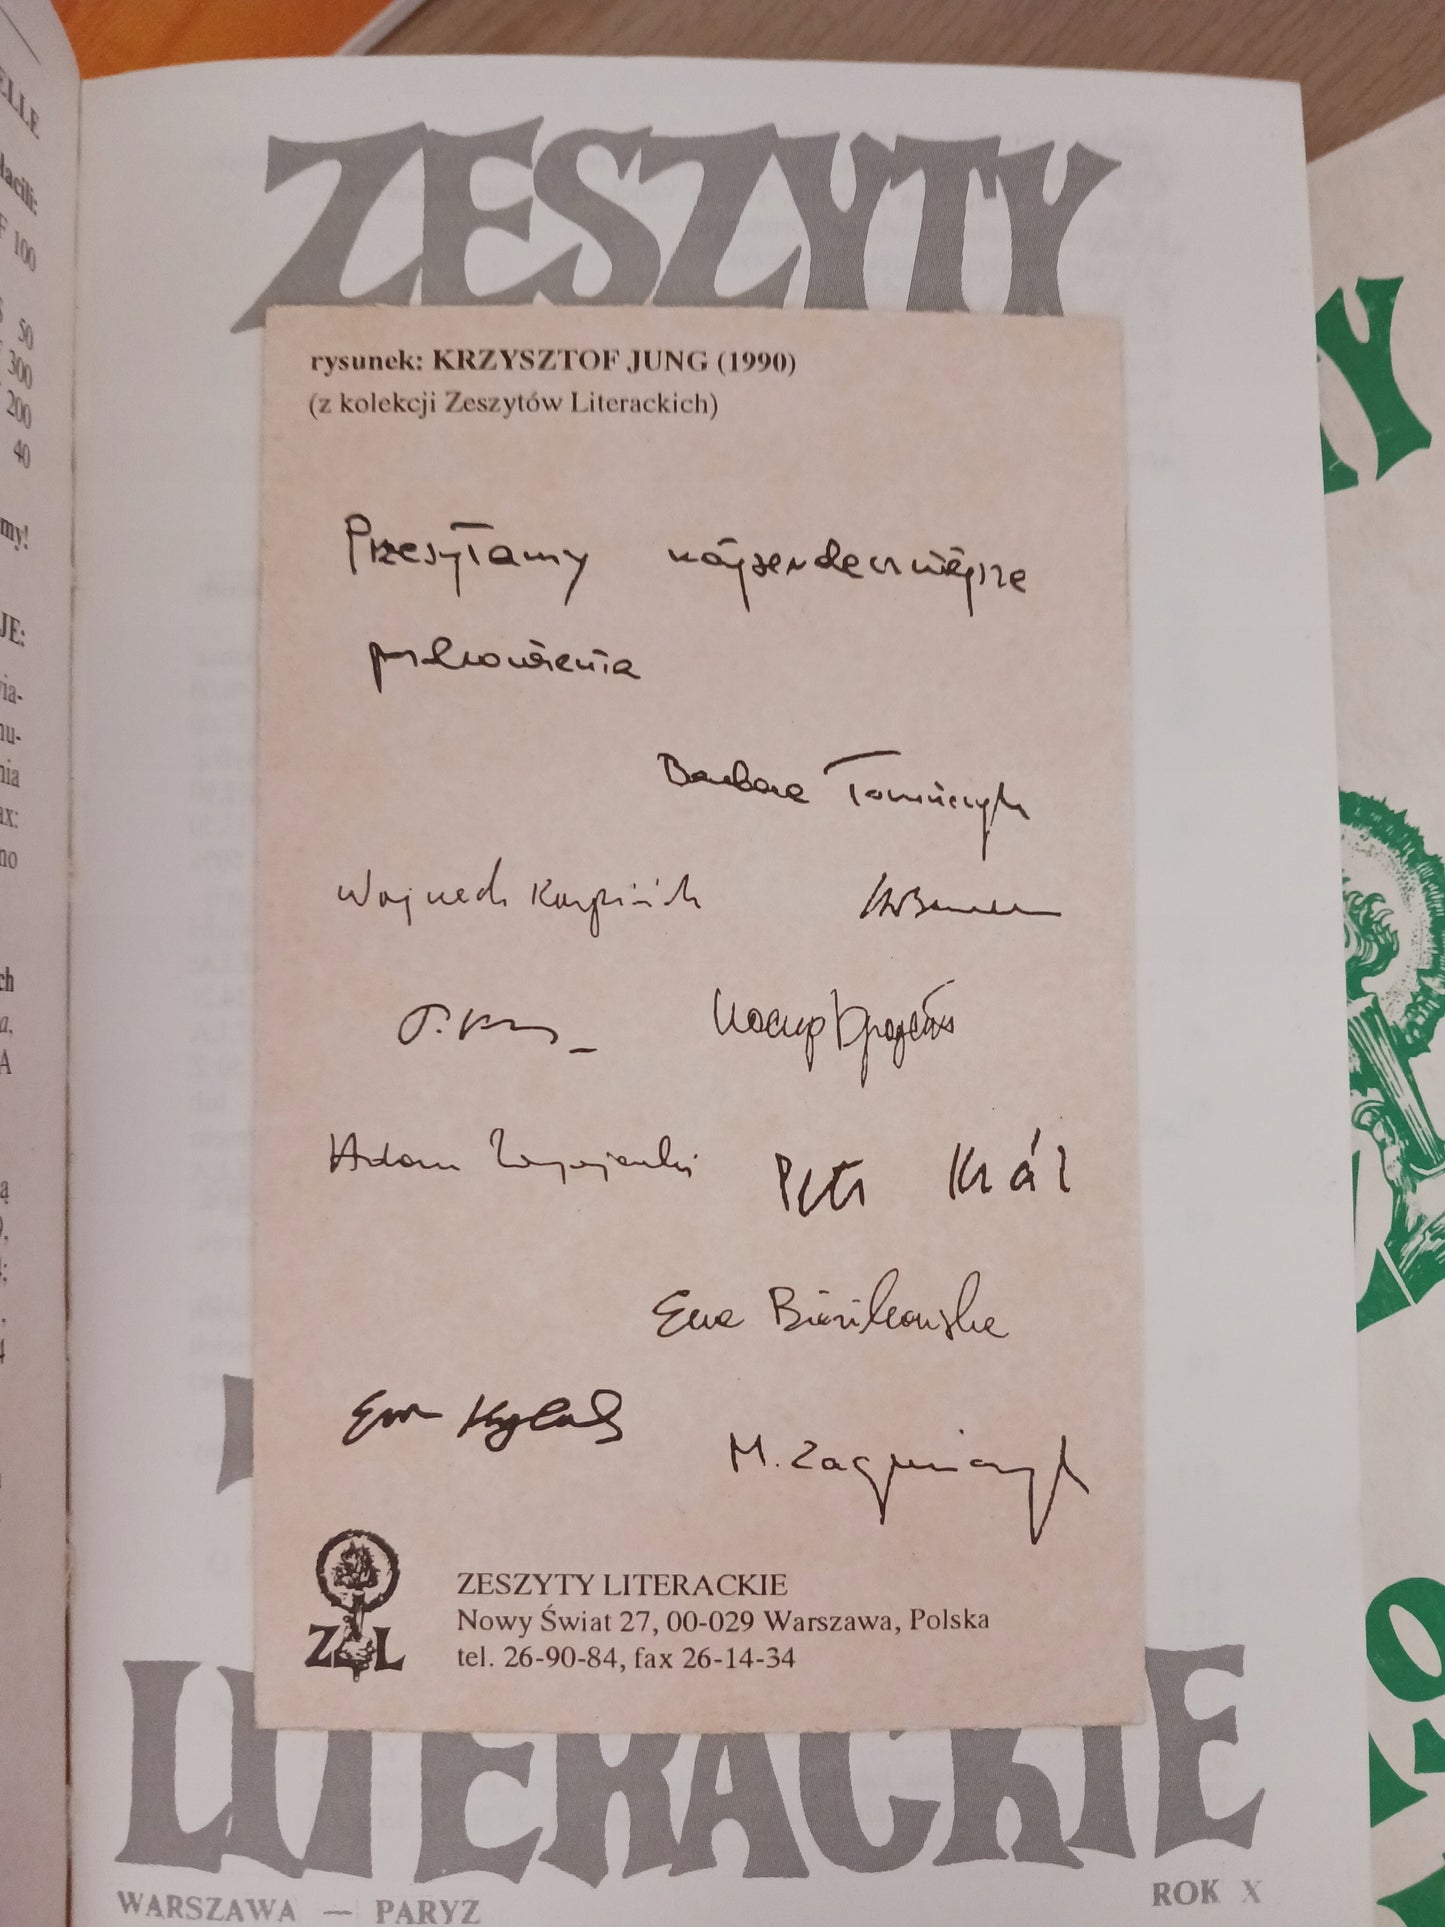 ELLE
łacili:
F 100
50
300
200
40
my!
JE:
wia-
nu-
nia
ax:
no
ch
a,
A
ą
ZESZYTY
rysunek: KRZYSZTOF JUNG (1990)
(z kolekcji Zeszytów Literackich)
Przesyłamy najserdeczniejsze
pozdrowienia
Barbara Toruńczyk
Wojciech Karpiński
Adam Zagajewski Petr Král
Ewa Bieńkowska
Ewa Kuryluk
M. Zagańczyk
ZL
ZESZYTY LITERACKIE
Nowy Świat 27, 00-029 Warszawa, Polska
tel. 26-90-84, fax 26-14-34
LITERACKIE
WARSZAWA — PARYŻ ROK X
TY